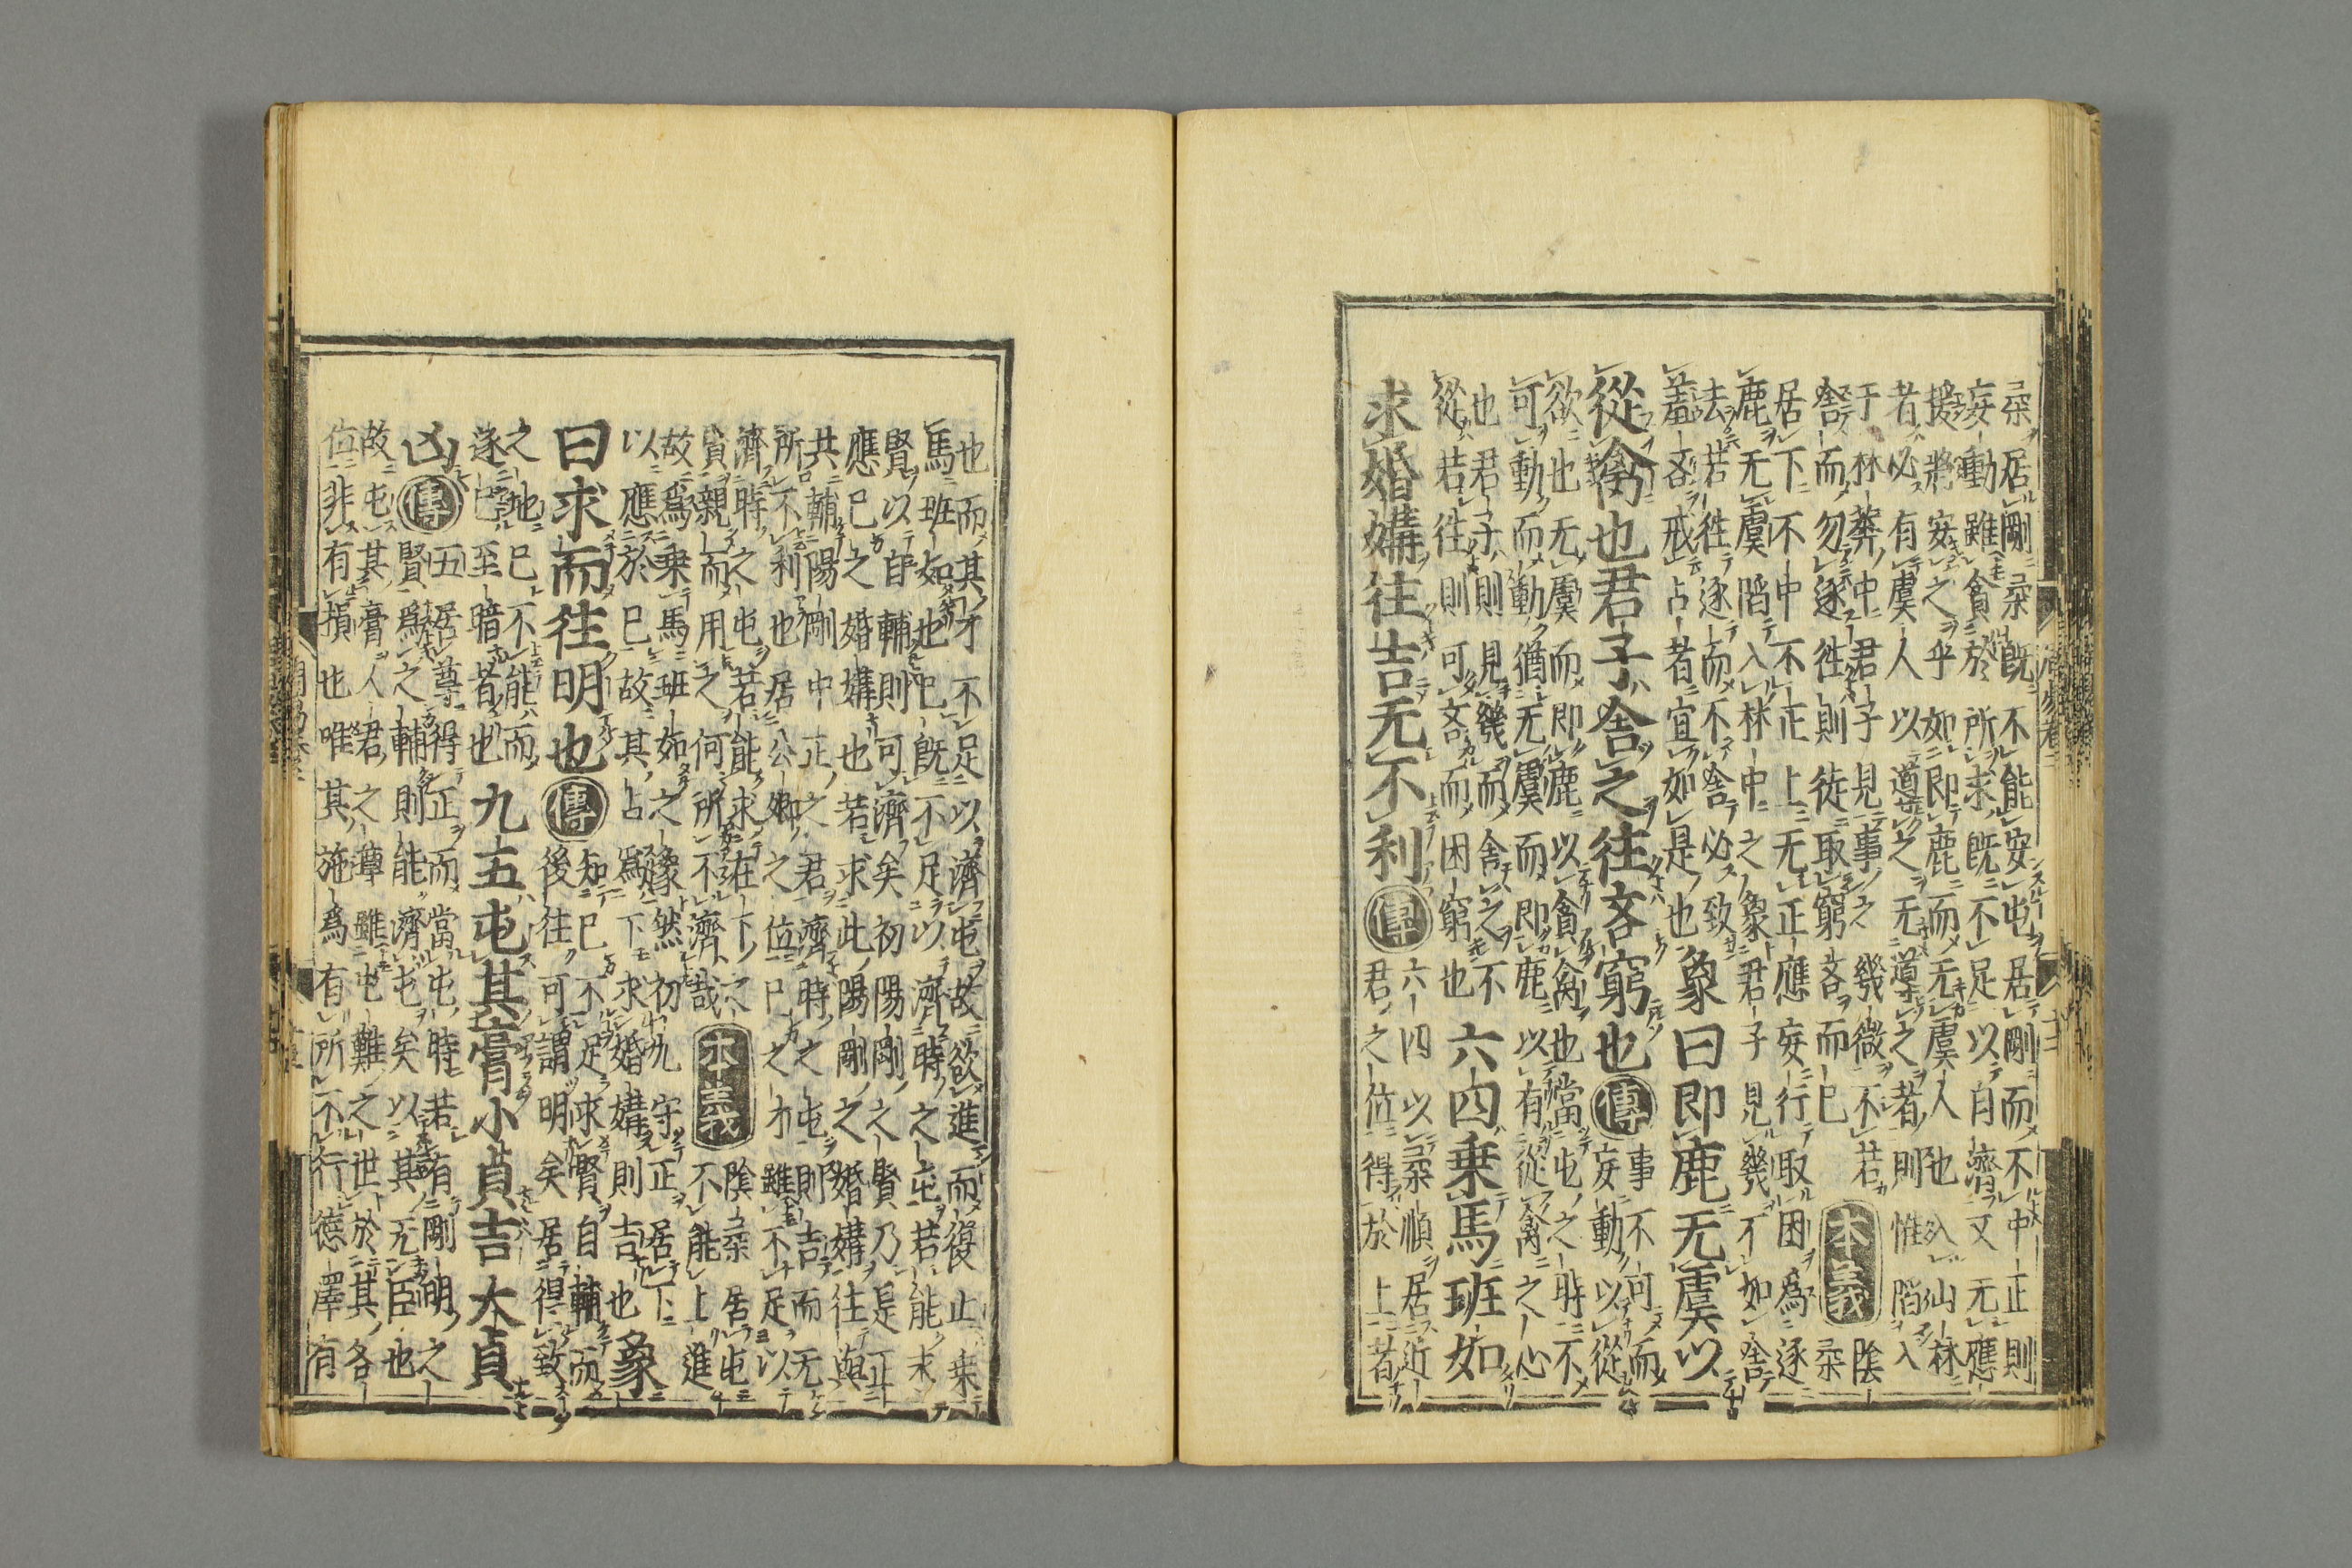 柔居剛柔既不能安屯居剛而不中正則
妄動雖貪於所求既不足以自濟又无應
援將安之乎如即鹿而无虞人也入山林
者必有虞人以導之无導之者則惟陷入
于林莽中君子見事之幾微不若
舍而勿逐往則徒取窮吝而已
本義 陰柔
居下不中不正上无正應妄行取困為逐
鹿无虞陷入林中之象君子見幾不如舍
去若往逐而不舍必致
羞吝戒占者宜如是也
象曰即鹿无虞以
從禽也君子舍之往吝窮也
傳 事不可而
妄動以從
欲也无虞而即鹿以貪禽也當屯之時不
可動而動猶无虞而即鹿以有從禽之心
也君子則見幾而舍之不
從若往則可吝而困窮也
六四乗馬班如
求婚媾往吉无不利
傳 六四以柔順居近
君之位得於上者
也而其才不足以濟屯故欲進而復止乗
馬班如也己既不足以濟時之屯若能求
賢以自輔則可濟矣初陽剛之賢乃是正
應己之婚媾也若求此陽剛之婚媾往與
共輔陽剛中正之君濟時之屯則吉而无
所不利也居公卿之位己之才雖不足以
濟時之屯若能求在下之
賢親而用之何所不濟哉
本義 陰柔居屯
不能上進
故為乗馬班如之象然初九守正居下
以應於己故其占為下求婚媾則吉也
象
曰求而往明也
傳 知己不足求賢自輔而
後往可謂明矣居得致
之地己不能而
遂已至暗者也
九五屯其膏小貞吉大貞
凶
傳 五居尊得正而當屯時若有剛明之
賢為之輔則能濟屯矣以其无臣也
故屯其膏人君之尊雖屯難之世於其名
位非有損也唯其施為有所不行德澤有